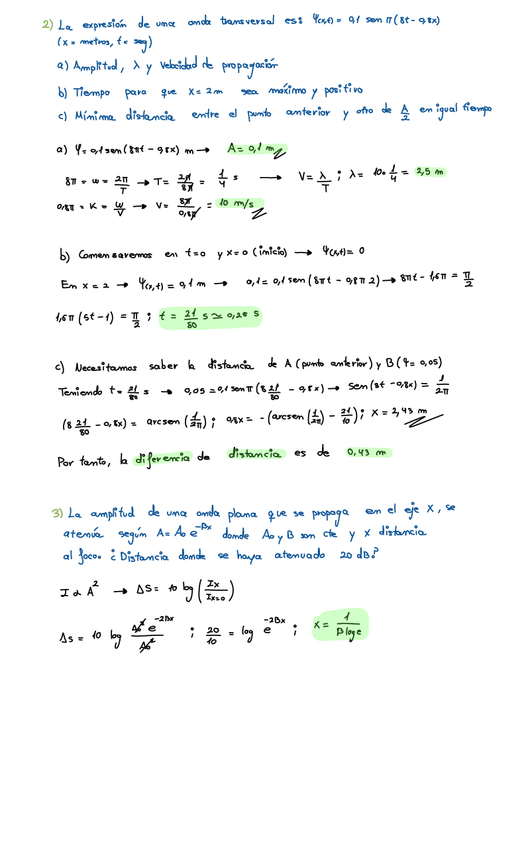 2) La expresión de una onda transversal es: Ψ(x,t) = 0,1 sen π(8t - 0,8x)
(x = metros, t = seg)
a) Amplitud, λ y Velocidad de propagación
b) Tiempo para que x = 2m sea máximo y positivo
c) Mínima distancia entre el punto anterior y otro de A/2 en igual tiempo
a) Ψ = 0,1 sen (8πt - 0,8x) m → A = 0,1 m
8π = ω = 2π/T → T = 2π/8π = 1/4 s → V = λ/T ; λ = 10 · 1/4 = 2,5 m
0,8π = K = ω/V → V = 8π/0,8π = 10 m/s
b) Comenzaremos en t=0 y x=0 (inicio) → Ψ(x,t) = 0
En x = 2 → Ψ(2,t) = 0,1 m → 0,1 = 0,1 sen (8πt - 0,8π 2) → 8πt - 1,6π = π/2
1,6π (5t - 1) = π/2 ; t = 21/80 s ≃ 0,26 s
c) Necesitamos saber la distancia de A (punto anterior) y B (Ψ = 0,05)
Teniendo t = 21/80 s → 0,05 = 0,1 sen π (8 21/80 - 0,8x) → sen (8t - 0,8x) = 1/2π
(8 21/80 - 0,8x) = arcsen (1/2π) ; 0,8x = - (arcsen (1/2π) - 21/10) ; x = 2,43 m
Por tanto, la diferencia de distancia es de 0,43 m
3) La amplitud de una onda plana que se propaga en el eje X, se
atenúa según A = A₀ e^-βx donde A₀ y B son cte y x distancia
al foco. ¿Distancia donde se haya atenuado 20 dB?
I α A² → ΔS = 10 log (Ix/Ix=0)
Δs = 10 log A₀² e^-2βx / A₀² ; 20/10 = log e^-2βx ; x = 1/β log e